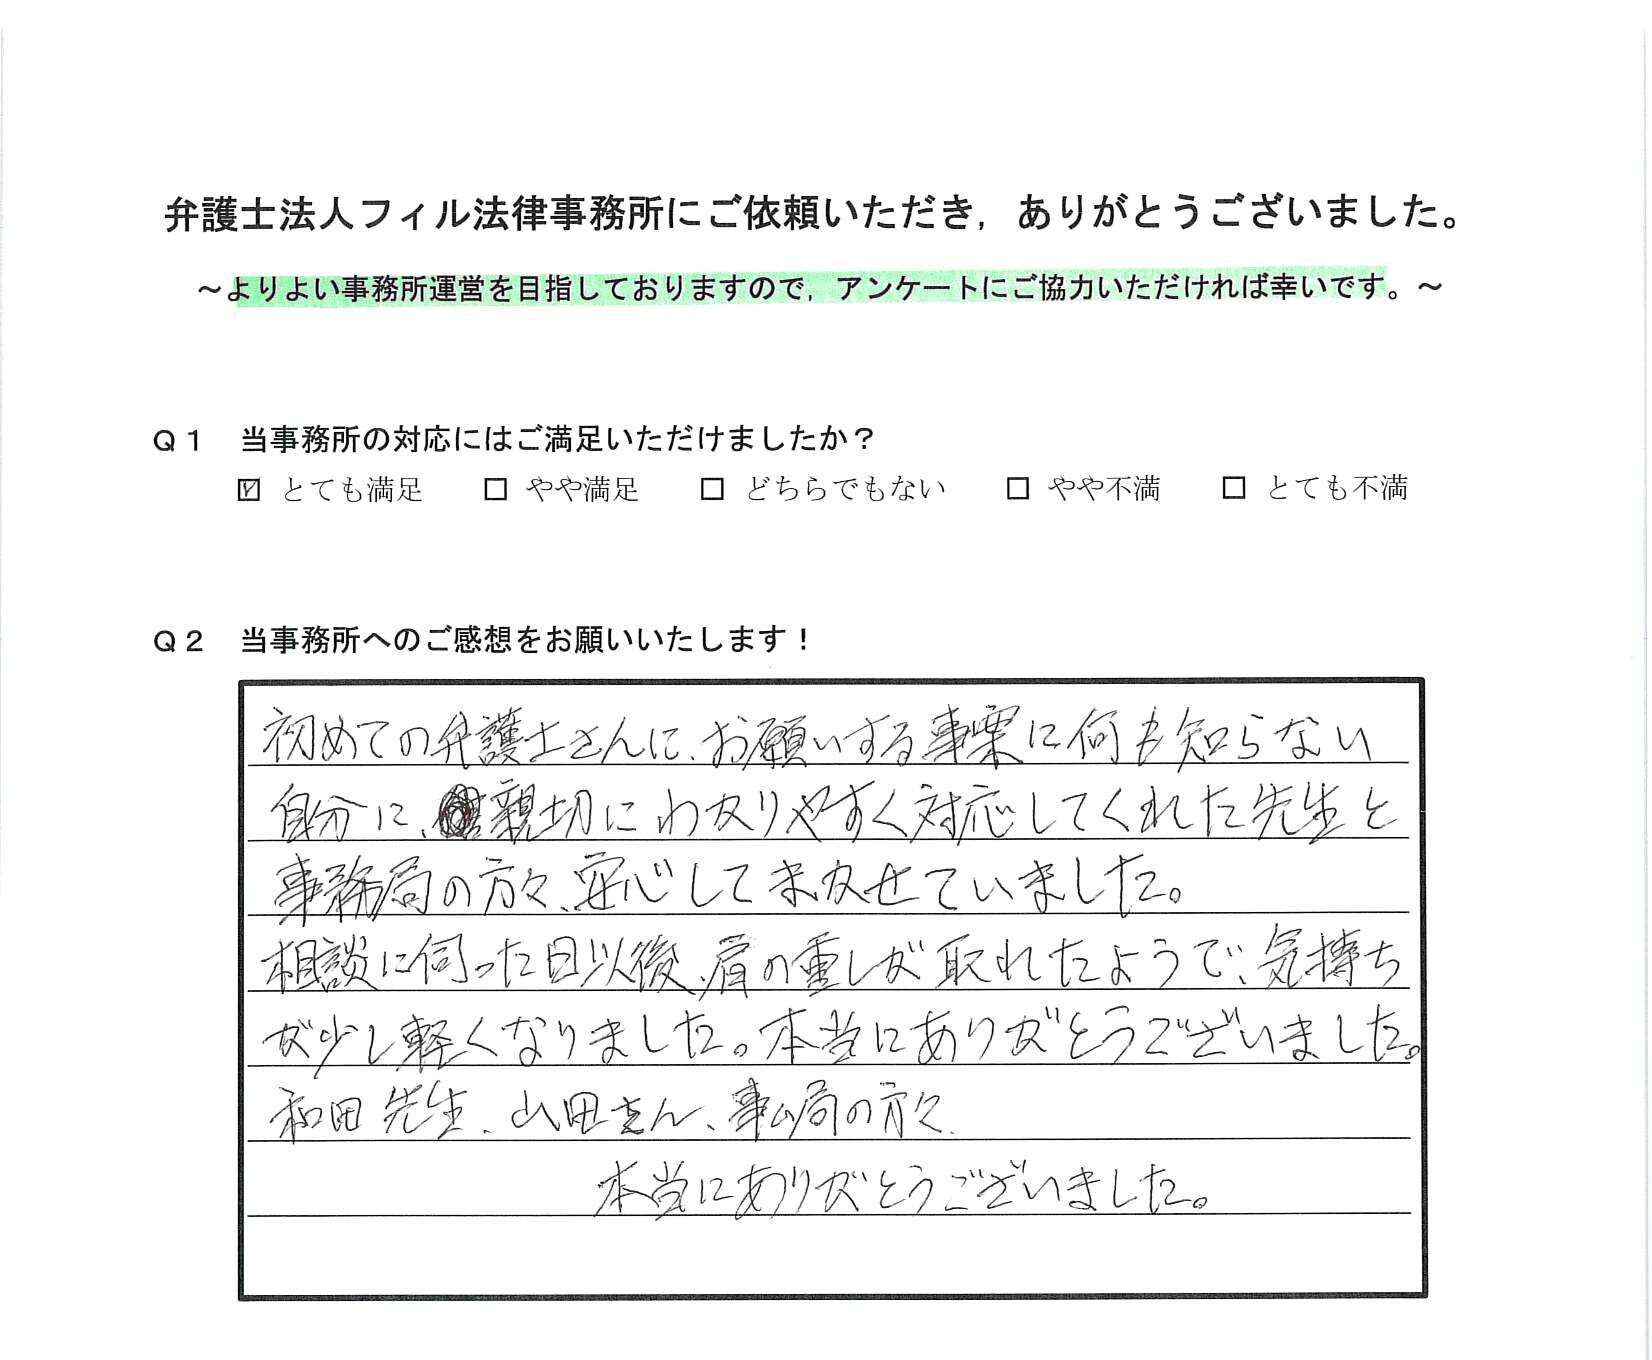 弁護士法人フィル法律事務所にご依頼いただき，ありがとうございました。
～よりよい事務所運営を目指しておりますので，アンケートにご協力いただければ幸いです。～
Ｑ１　当事務所の対応にはご満足いただけましたか？
☑ とても満足　□ やや満足　□ どちらでもない　□ やや不満　□ とても不満
Ｑ２　当事務所へのご感想をお願いいたします！
初めての弁護士さんに、お願いする事案に何も知らない
自分に、親切にわかりやすく対応してくれた先生と
事務局の方々、安心してまかせていました。
相談に伺った日以後、肩の重しが取れたようで、気持ち
が少し軽くなりました。本当にありがとうございました。
和田先生、山田さん、事ム局の方々、
本当にありがとうございました。